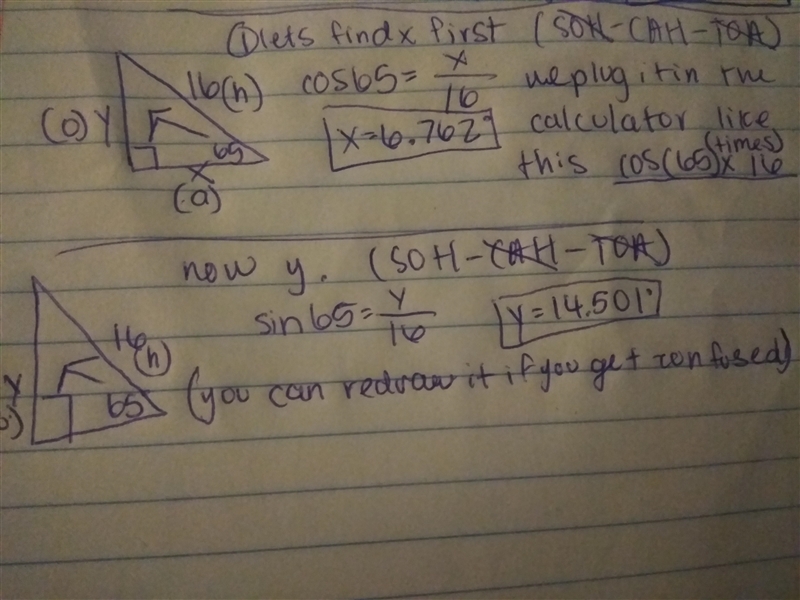 ① lets find x first (SOH-CAH-TOA)
16(h) cos65 = x/16 we plug it in the
(o) Y x=6.762° calculator like
65 this cos(65)x 16 (times)
x
(a)
now y. (SOH-CAH-TOA)
sin65 = Y/16 y=14.501°
16 (h)
Y 65 (you can redraw it if you get confused)